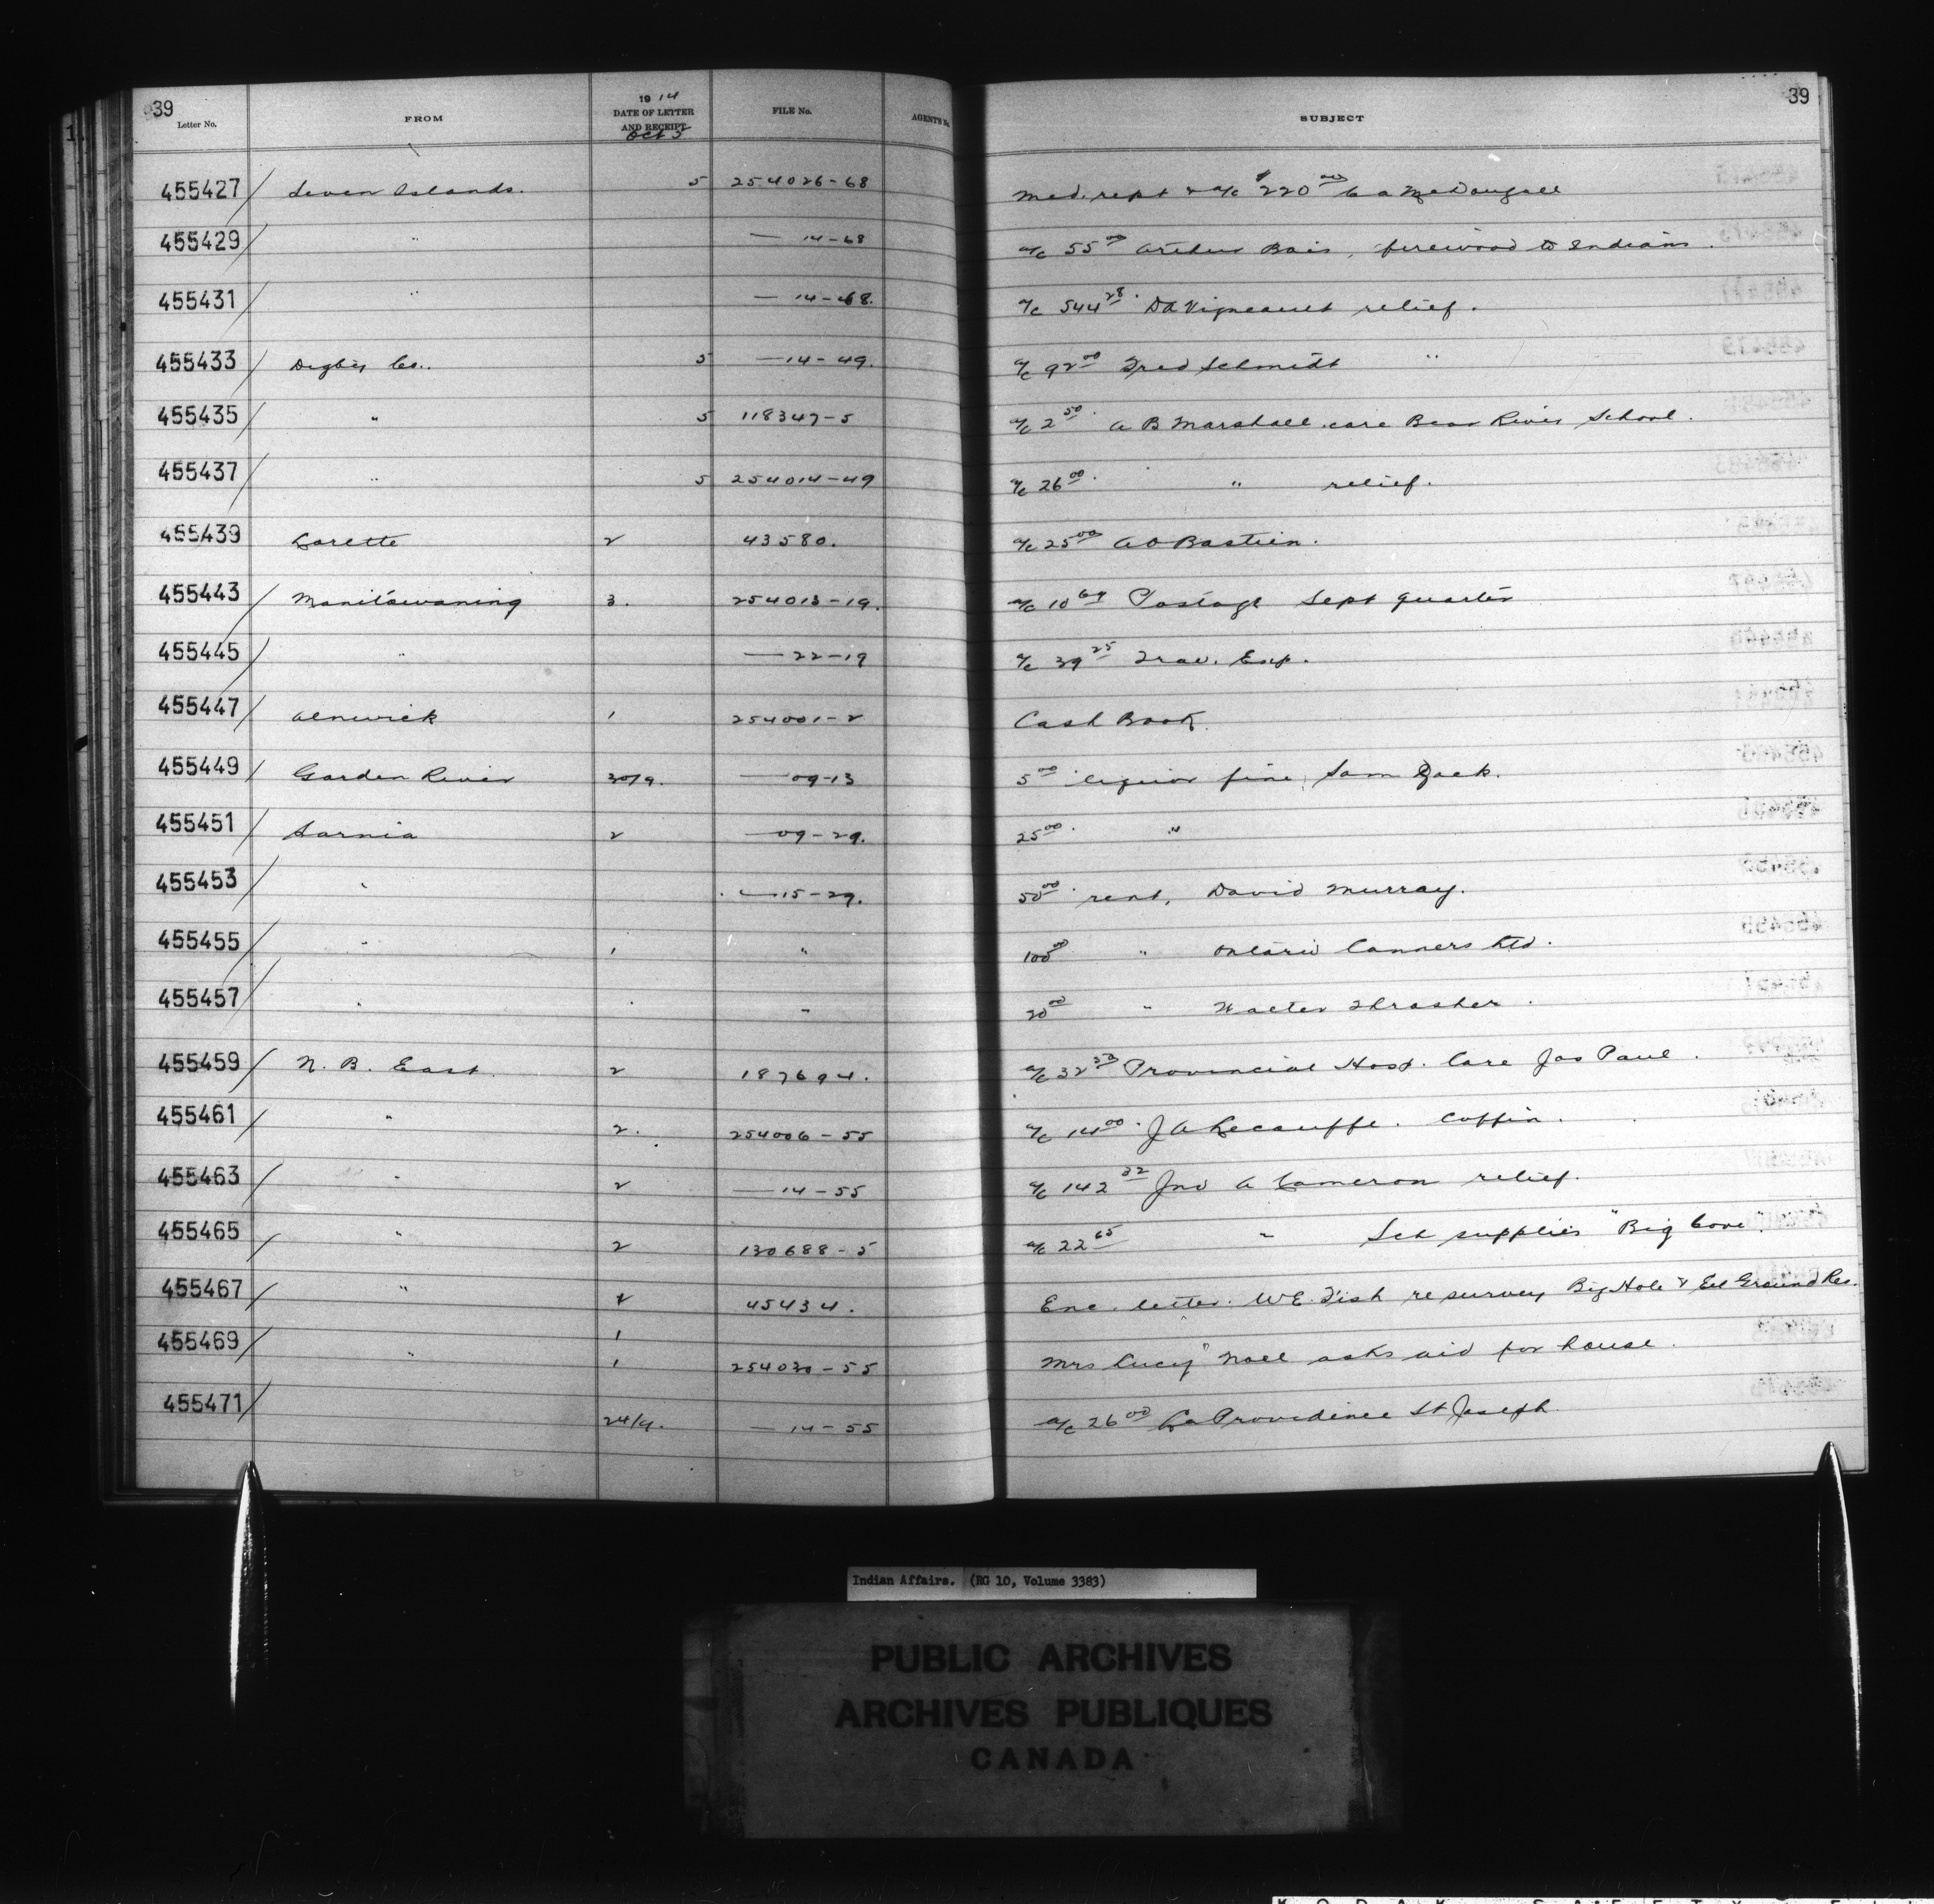 39 39
Letter No. FROM 1914 DATE OF LETTER AND RECEIPT FILE No. AGENTS No. SUBJECT
Oct 5
455427 Seven Islands. 5 254026-68 Med. rept & a/c $220 00 C A McDougall
455429 " — 14-68 a/c 55 00 Arthur Bais, firewood to Indians.
455431 " — 14-68. a/c 544 28. DA Vigneault relief.
455433 Digby Co.. 5 — 14-49. a/c 92 00 Fred Schmidt "
455435 " 5 118347-5 a/c 2 50. A B Marshall care Bear River School.
455437 " 5 254014-49 a/c 26 00. " relief.
455439 Lorette 2 43580. a/c 25 00 A O Bastien.
455443 Manitowaning 3. 254013-19. a/c 10 64 Postage Sept quarter
455445 " — 22-19 a/c 39 25 Trav. Exp.
455447 Alnwick 1 254001-2 Cash Book.
455449 Garden River 30/9. — 09-13 5 00 liquor fine, Sam Zack.
455451 Sarnia 2 — 09-29. 25 00. "
455453 " — 15-29. 50 00. rent, David Murray.
455455 " 1 " 100 00 " Ontario Canners Ltd.
455457 " " " 20 00 " Walter Thrasher.
455459 N. B. East. 2 187694. a/c 32 50 Provincial Hosp. Care Jas Paul.
455461 " 2. 254006-55 a/c 14 00. J A Lecouffe. Coffin.
455463 " 2 — 14-55 a/c 142 32 Jno A Cameron relief.
455465 " 2 130688-5 a/c 22 65 " Sch supplies "Big Cove".
455467 " 2 45434. Enc. letter. W.E. Fish re survey Big Hole & Eel Ground Res.
455469 " 1 1 254030-55 Mrs Lucy Noel asks aid for house.
455471 24/9. — 14-55 a/c 26 00 La Providence St Joseph.
Indian Affairs. (RG 10, Volume 3383)
PUBLIC ARCHIVES
ARCHIVES PUBLIQUES
CANADA